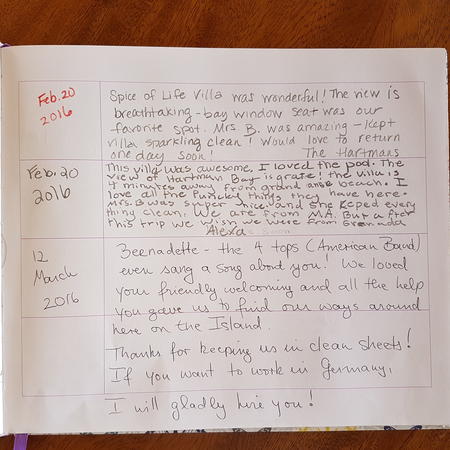 Feb. 20
2016
Spice of Life Villa was wonderful! The view is
breathtaking - bay window seat was our
favorite spot. Mrs. B. was amazing - kept
villa sparkling clean! Would love to return
one day soon! The Hartmans
Feb. 20
2016
This villa was awesome, I loved the pool. The
view of Hartman Bay is grate! the villa is
4 minutes away from grand anse beach. I
love all the things they have here.
Mrs. B was super nice. and she keped every
thing clean. We are from MA. But after
this trip we wish we were from Grenada
Alexa
12
March
2016
Bernadette - the 4 tops (American Band)
even sang a song about you! We loved
your friendly welcoming and all the help
you gave us to find our ways around
here on the Island.
Thanks for keeping us in clean sheets!
If you want to work in Germany,
I will gladly hire you!